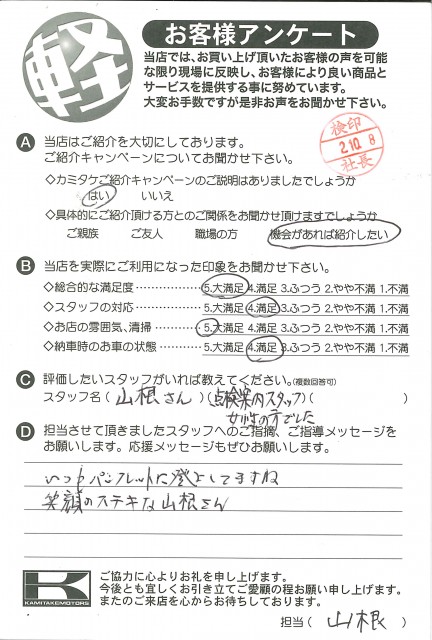 軽
お客様アンケート
当店では、お買い上げ頂いたお客様の声を可能
な限り現場に反映し、お客様により良い商品と
サービスを提供する事に努めています。
大変お手数ですが是非お声をお聞かせ下さい。
検印
2.10.8
社長
A 当店はご紹介を大切にしております。
ご紹介キャンペーンについてお聞かせ下さい。
◇カミタケご紹介キャンペーンのご説明はありましたでしょうか
はい いいえ
◇具体的にご紹介頂ける方とのご関係をお聞かせ頂けますでしょうか
ご親族 ご友人 職場の方 機会があれば紹介したい
B 当店を実際にご利用になった印象をお聞かせ下さい。
◇総合的な満足度 ・・・・・・・・・・・・ 5.大満足 4.満足 3.ふつう 2.やや不満 1.不満
◇スタッフの対応 ・・・・・・・・・・・・ 5.大満足 4.満足 3.ふつう 2.やや不満 1.不満
◇お店の雰囲気、清掃 ・・・・・・・・ 5.大満足 4.満足 3.ふつう 2.やや不満 1.不満
◇納車時のお車の状態 ・・・・・・・・ 5.大満足 4.満足 3.ふつう 2.やや不満 1.不満
C 評価したいスタッフがいれば教えてください。(複数回答可)
スタッフ名 ( 山根さん )(点検案内スタッフ)( )
女性の方でした
D 担当させて頂きましたスタッフへのご指摘、ご指導メッセージを
お願いします。応援メッセージもぜひお願いします。
いつもパンフレットに登としてますね
笑顔のステキな山根さん
K
KAMITAKEMOTORS
ご協力に心よりお礼を申し上げます。
今後とも宜しくお引き立てご愛顧の程お願い申し上げます。
またのご来店を心からお待ちしております。
担当 ( 山根 )